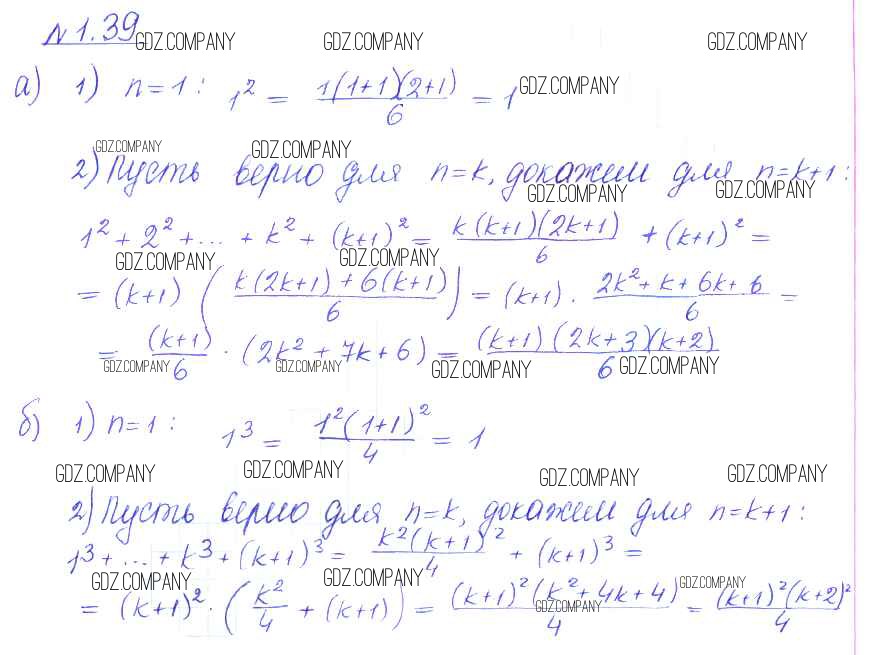 № 1.39 GDZ.COMPANY GDZ.COMPANY GDZ.COMPANY
а) 1) n=1: 1² = 1(1+1)(2+1)/6 = 1 GDZ.COMPANY
GDZ.COMPANY GDZ.COMPANY
2) Пусть верно для n=k, докажем для n=k+1:
GDZ.COMPANY GDZ.COMPANY
1² + 2² + ... + k² + (k+1)² = k(k+1)(2k+1)/6 + (k+1)² =
GDZ.COMPANY GDZ.COMPANY
= (k+1) (k(2k+1)+6(k+1)/6) = (k+1) · 2k²+k+6k+6/6 =
= (k+1)/6 · (2k²+7k+6) = (k+1)(2k+3)(k+2)/6
GDZ.COMPANY GDZ.COMPANY GDZ.COMPANY GDZ.COMPANY
б) 1) n=1: 1³ = 1²(1+1)²/4 = 1
GDZ.COMPANY GDZ.COMPANY GDZ.COMPANY GDZ.COMPANY
2) Пусть верно для n=k, докажем для n=k+1:
1³ + ... + k³ + (k+1)³ = k²(k+1)²/4 + (k+1)³ =
GDZ.COMPANY GDZ.COMPANY GDZ.COMPANY
= (k+1)² · (k²/4 + (k+1)) = (k+1)²(k²+4k+4)/4 = (k+1)²(k+2)²/4
GDZ.COMPANY